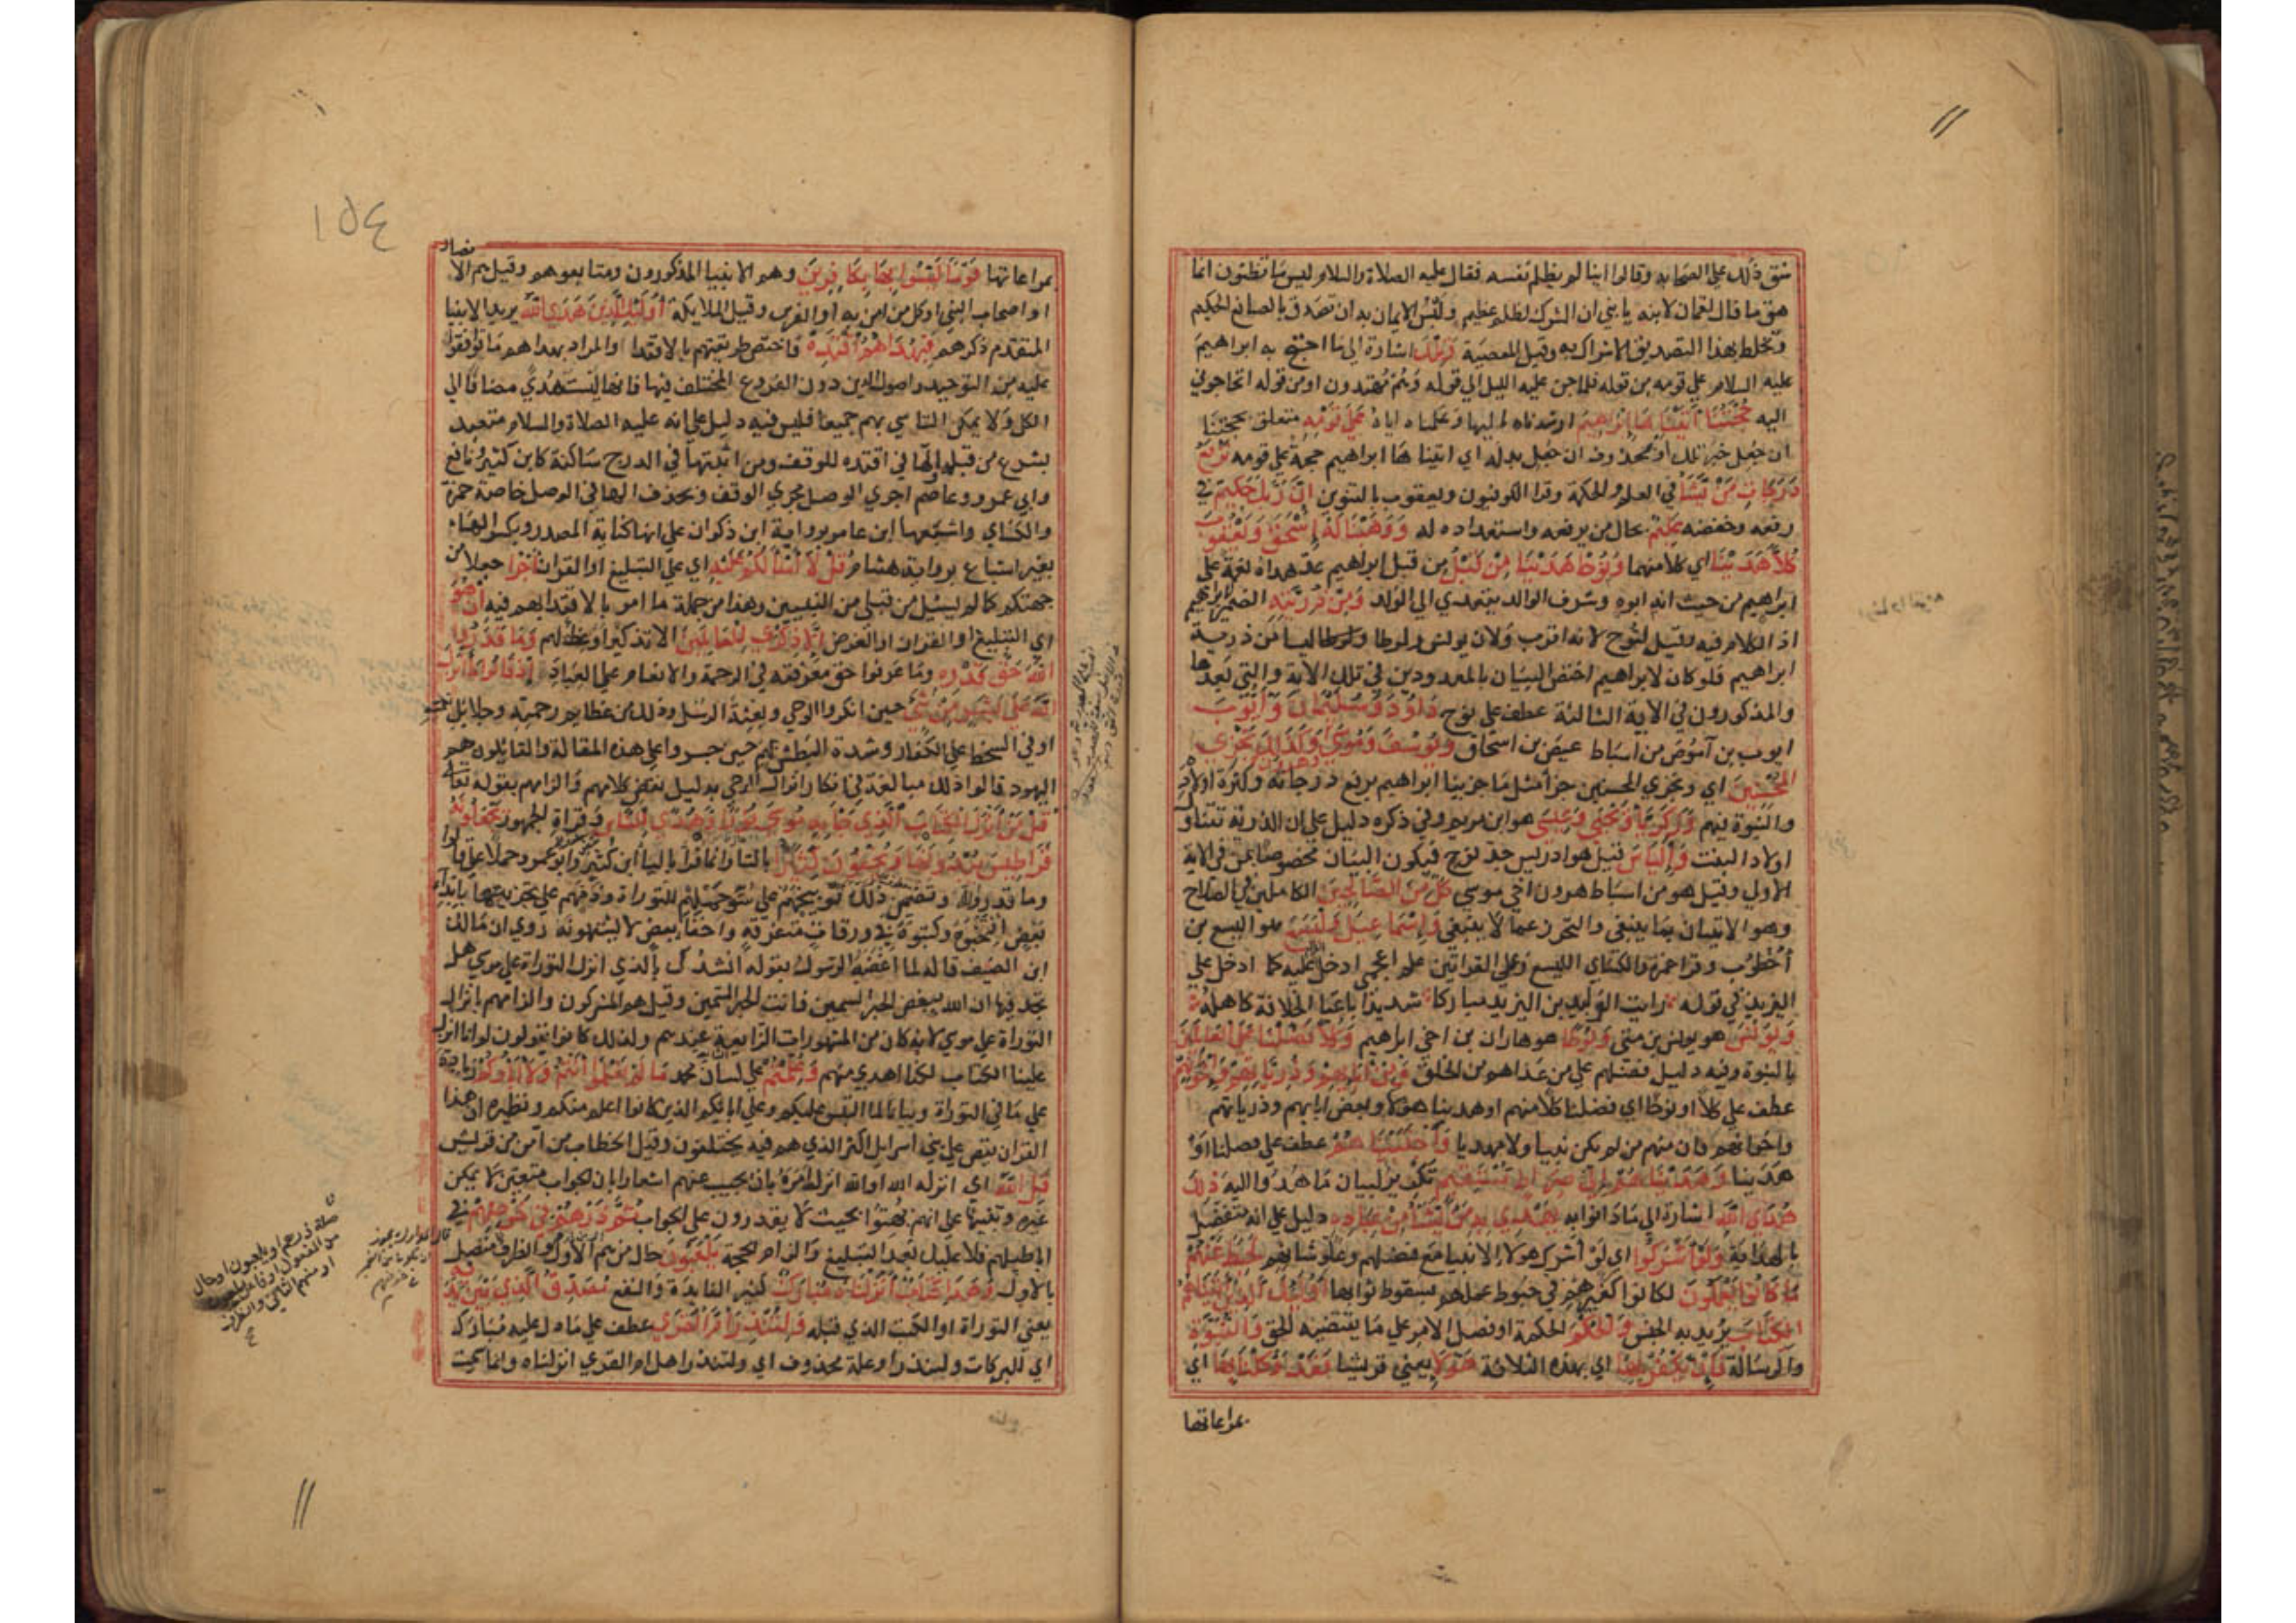 شق ذلك على الصحابه وقالوا اينا لم يظلم نفسه فقال عليه الصلاة والسلام ليس ما تظنون انما
هو ما قال لقمان لابنه يا بني ان الشرك لظلم عظيم ولبس الايمان به ان تصدق بالصانع الحكيم
وتخلط بهذا التصديق الاشراك به وقيل المعصية وتلك اشارة الى ما احتج به ابراهيم
عليه السلام على قومه من قوله فلما جن عليه الليل الى قوله وهم مهتدون او من قوله اتحاجوني
اليه حجتنا آتيناها ابراهيم ارشدناه اليها وعلمناه اياه على قومه متعلق بحجتنا
ان جعل خبر تلك او محذوف ان جعل بدله اي اتيناها ابراهيم حجة على قومه نرفع
درجات من نشا في العلم والحكمة وقرا الكوفيون ويعقوب بالتنوين ان ربك حكيم في
رفعه وخفضه عليم بحال من يرفعه واستعداده له ووهبنا له اسحق ويعقوب
كلا هدينا اي كلا منهما ونوحا هدينا من قبل من قبل ابراهيم عد هداه نعمة على
ابراهيم من حيث انه ابوه وشرف الوالد يتعدي الى الولد ومن ذريته الضمير لابراهيم
اذ الكلام فيه وقيل لنوح لانه اقرب ولان يونس ولوطا ليسا من ذرية
ابراهيم فلو كان لابراهيم اختص البيان بالمعدودين في تلك الاية والتي بعدها
والمذكورون في الاية الثالثة عطف على نوح داود وسليمان وايوب
ايوب بن آموص من اسباط عيص بن اسحاق ويوسف وموسى وهرون وكذلك نجزي
المحسنين اي ونجزي المحسنين جزا مثل ما جزينا ابراهيم برفع درجاته وكثرة اولاده
والنبوة فيهم وزكريا ويحيى وعيسى هو ابن مريم وفي ذكره دليل على ان الذرية تتناول
اولاد البنت والياس قيل هو ادريس جد نوح فيكون البيان مخصوصا بمن في الاية
الاولى وقيل هو من اسباط هرون اخي موسى كل من الصالحين الكاملين في الصلاح
وهو الاتيان بما ينبغي والتحرز عما لا ينبغي واسماعيل واليسع هو اليسع بن
أخطوب وقرا حمزة والكساي الليسع وعلى القراتين علم اعجمي ادخل عليه كما ادخل على
اليزيد في قوله رايت الوليد بن اليزيد مباركا شديدا باعبا الخلافة كاهله
ويونس هو يونس بن متى ولوطا هو هاران بن اخي ابراهيم وكلا فضلنا على العالمين
بالنبوة وفيه دليل فضلهم على من عداهم من الخلق ومن آبائهم وذرياتهم واخوانهم
عطف على كلا او نوحا اي فضلنا كلا منهم او هدينا هؤلا وبعض ابايهم وذرياتهم
واخوانهم فان منهم من لم يكن نبيا ولا مهديا واجتبيناهم عطف على فضلنا او
هدينا وهديناهم الى صراط مستقيم تكرير لبيان ما هدوا اليه ذلك
هدى الله اشارة الى ما دانوا به يهدي به من يشا من عباده دليل على انه متفضل
بالهداية ولو اشركوا اي لو أشرك هولا الانبيا مع فضلهم وعلو شانهم لحبط عنهم
ما كانوا يعملون لكانوا كغيرهم في حبوط عملهم بسقوط ثوابها اوليك الذين آتيناهم
الكتاب يريد به الجنس والحكم الحكمة او فصل الامر على ما يقتضيه الحق والنبوة
والرسالة فان يكفر بها اي بهذه الثلاثة هولا يعني قريشا فقد وكلنا بها اي
بمراعاتها
١٥٤
بمراعاتها قوما ليسوا بها بكافرين وهم الانبيا المذكورون ومتابعوهم وقيل هم الا
نصار
او اصحاب النبي او كل من امن به او الفرس وقيل الملايكة اوليك الذين هدى الله يريد الانبيا
المتقدم ذكرهم فبهداهم اقتده فاختص طريقتهم بالاقتدا والمراد بهداهم ما توافقوا
عليه من التوحيد واصول الدين دون الفروع المختلف فيها فانها ليست هدى مضافا الى
الكل ولا يمكن التاسي بهم جميعا فليس فيه دليل على انه عليه الصلاة والسلام متعبد
بشرع من قبله والها في اقتده للوقف ومن اثبتها في الدرج ساكنة كابن كثير ونافع
وابي عمرو وعاصم اجري الوصل مجري الوقف ويحذف الها في الوصل خاصة حمزة
والكساي واشبعها ابن عامر برواية ابن ذكوان على انها كناية المصدر وبكسر الهاء
بغير اشباع برواية هشام قل لا أسألكم عليه اي على التبليغ او القران اجرا جعلا من
جهتكم كما لم يسئل من قبلي من النبيين وهذا من جملة ما امر بالاقتدا بهم فيه ان هو
اي التبليغ او القران او الغرض الا ذكرى للعالمين الا تذكيرا وعظة لهم وما قدروا
الله حق قدره وما عرفوا حق معرفته في الرحمة والانعام على العباد اذ قالوا ما انزل
الله على بشر من شي حين انكروا الوحي وبعثة الرسل وذلك من عظايم رحمته وجلايل نعمته
او في السخط على الكفار وشدة البطش بهم حين جسروا على هذه المقالة والقايلون هم
اليهود قالوا ذلك مبالغة في انكار انزال الوحي بدليل نقض كلامهم والزامهم بقوله تعالى
قل من أنزل الكتاب الذي جا به موسى نورا وهدى للناس وقراة الجمهور تجعلونه
قراطيس تبدونها وتخفون كثيرا بالتا وانما قرا باليا ابن كثير وابو عمرو حملا على قالوا
وما قدروا وتضمن ذلك توبيخهم على سوء حملهم للتوراة وذمهم على تجزيتها بابداء
بعض انتخبوه وكتبوه في ورقات متفرقة واخفاء بعض لا يشتهونه روي ان مالك
ابن الصيف قاله لما اغضبه الرسول بقوله انشدك بالذي انزل التوراة على موسى هل
تجد فيها ان الله يبغض الحبر السمين فانت الحبر السمين وقيل هم المشركون والزامهم بانزال
التوراة على موسى لانه كان من المشهورات الذايعة عندهم ولذلك كانوا يقولون لو انا انزل
علينا الكتاب لكنا اهدى منهم وعلمتم على لسان محمد ما لم تعلموا انتم ولا آباؤكم زيادة
على ما في التوراة وبيانا لما التبس عليكم وعلى ابايكم الذين كانوا اعلم منكم ونظيره ان هذا
القران يقص على بني اسرايل اكثر الذي هم فيه يختلفون وقيل الخطاب لمن آمن من قريش
قل الله اي انزله الله او الله انزله امره بان يجيب عنهم اشعارا بان الجواب متعين لا يمكن
غيره وتنبيها على انهم بهتوا بحيث لا يقدرون على الجواب ثم ذرهم في خوضهم في
اباطيلهم فلا عليك بعد التبليغ والزام الحجة يلعبون حال من هم الاول والظرف متصل
بالاول وهذا كتاب أنزلناه مبارك كثير الفايدة والنفع مصدق الذي بين يديه
يعني التوراة او الكتب الذي قبله ولتنذر ام القرى عطف على ما دل عليه مبارك
اي للبركات ولتنذر او علة محذوف اي ولتنذر اهل ام القرى انزلناه وانما سميت
صلة ذرهم او يلعبون او حال
من المفعول او فاعل يلعبون
او منهم الثاني والظرف